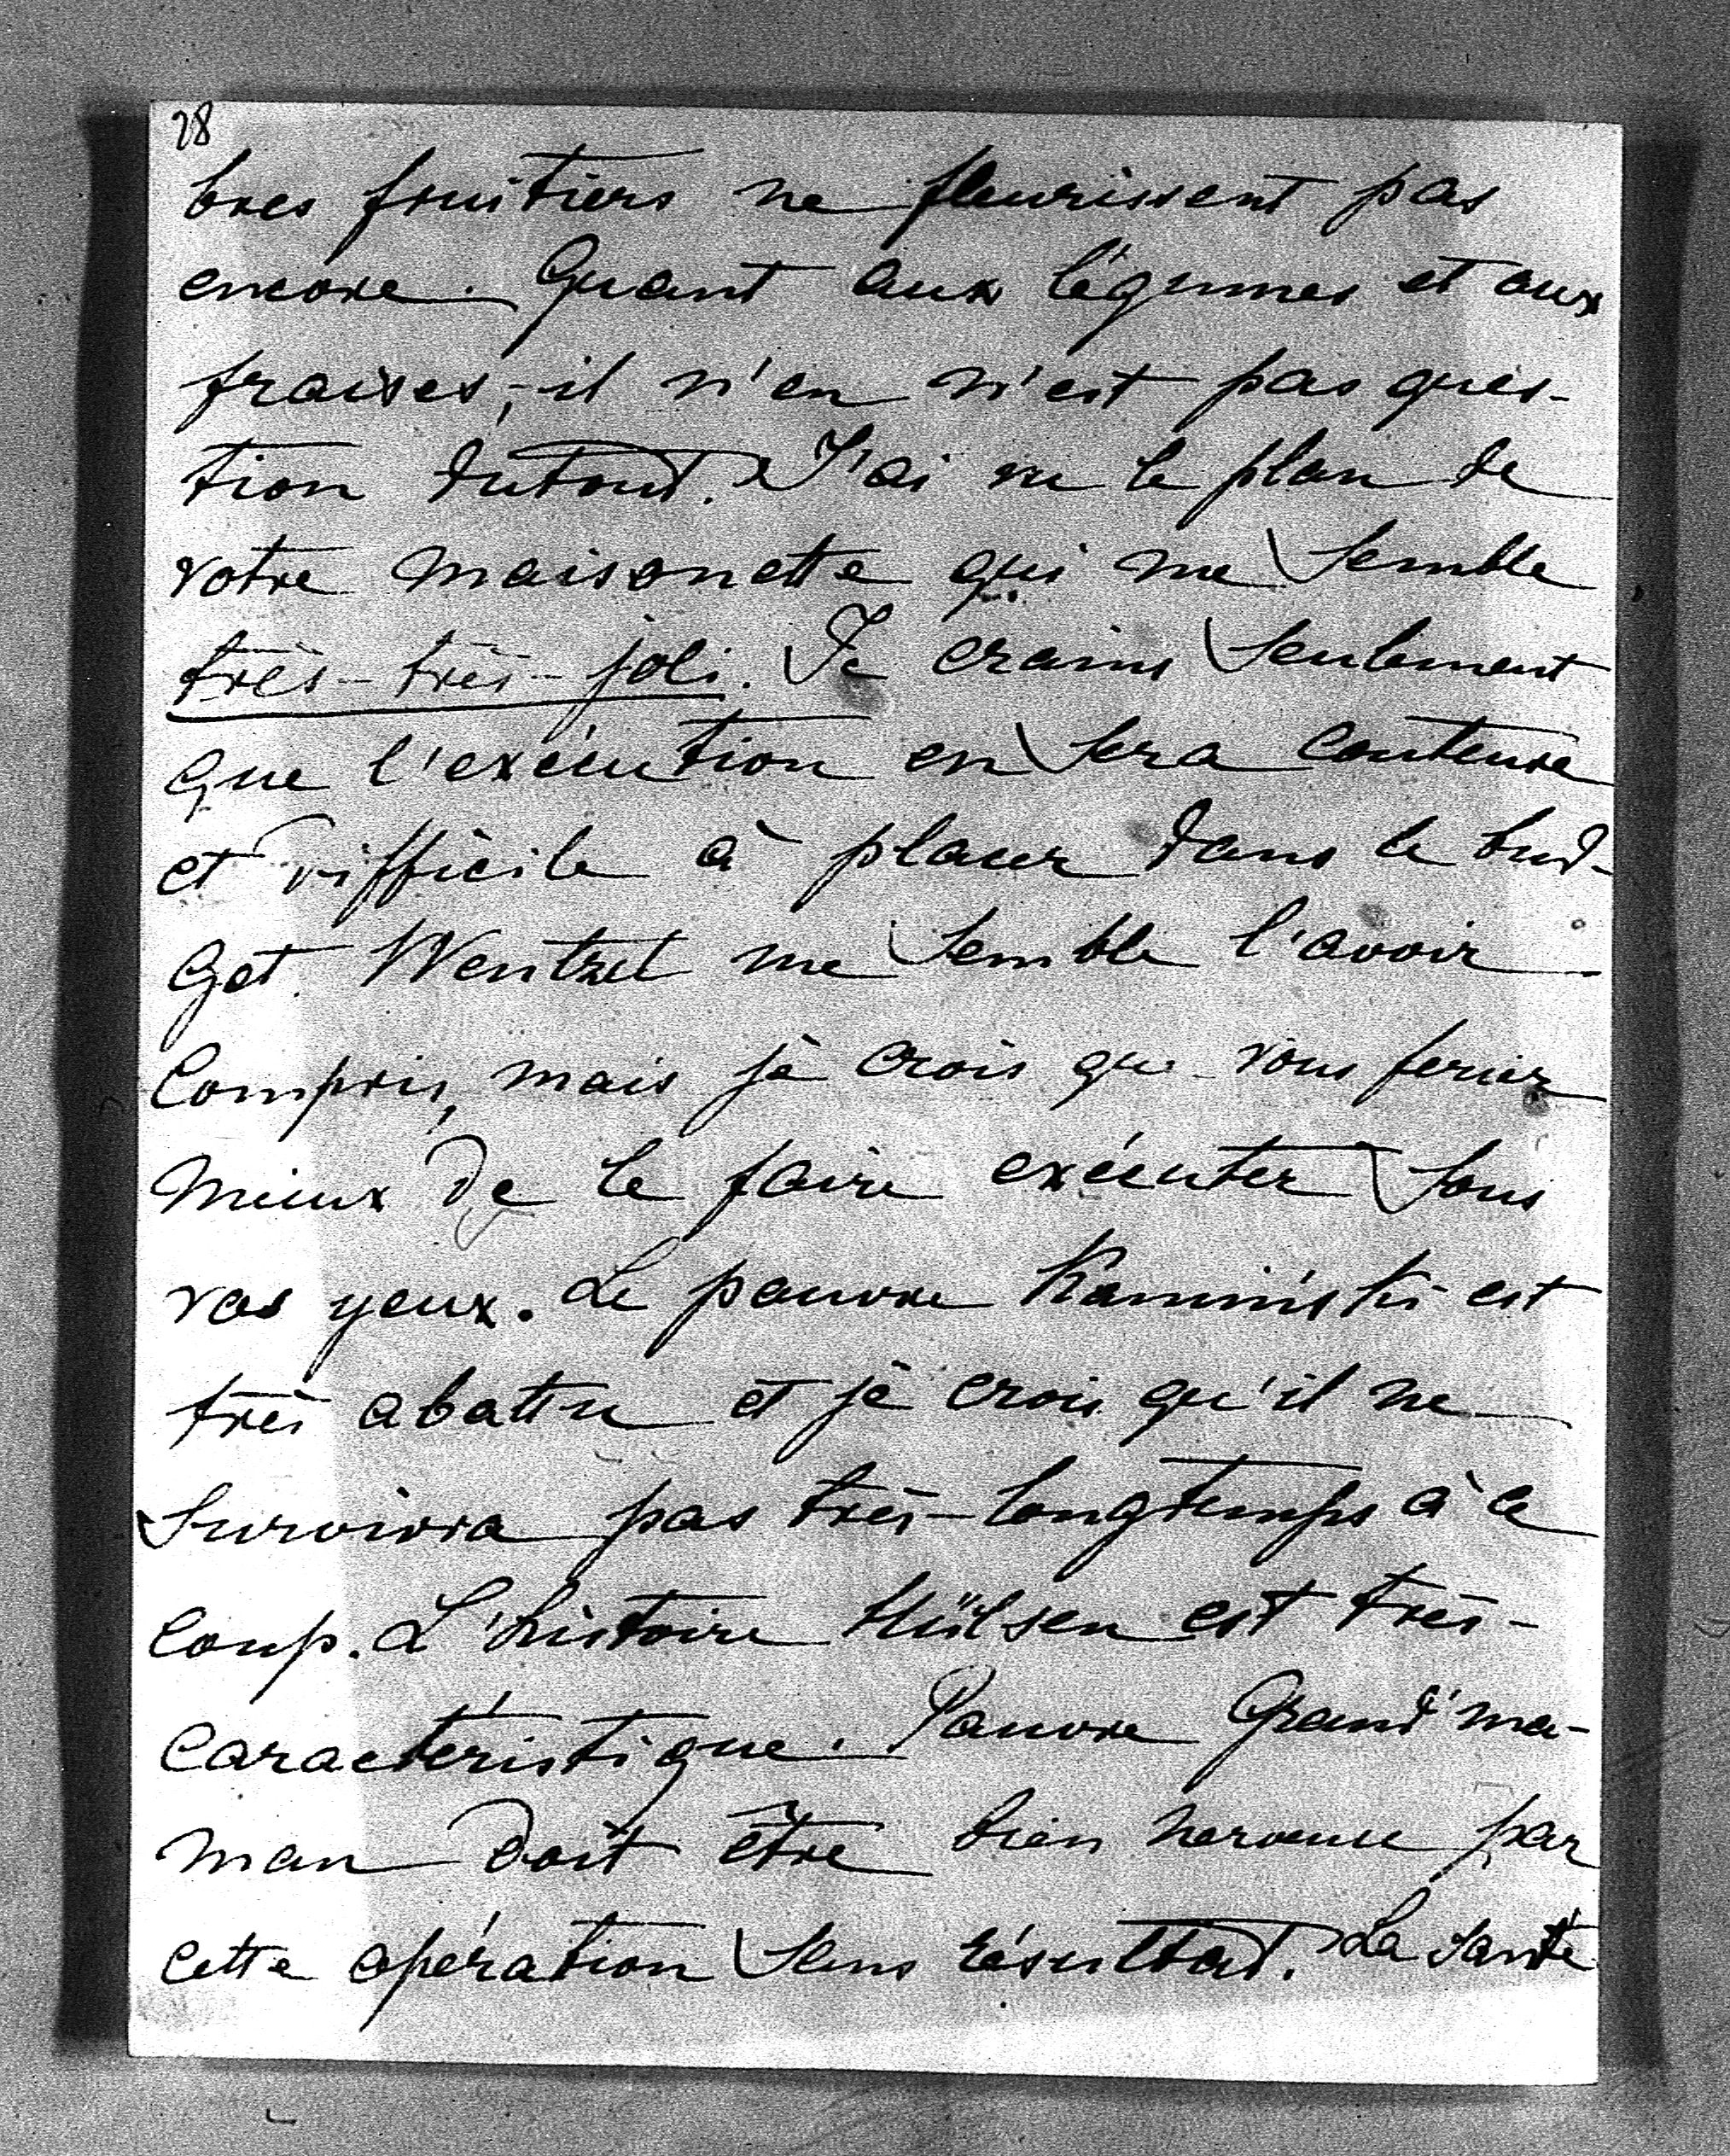 28
bres fruitiers ne fleurissent pas
encore. Quant aux légumes et aux
fraises, il n'en n'est pas ques-
tion dutout. J'ai vu le plan de
votre maisonette qui me semble
très-très-joli. Je crains seulement
que l'exécution en sera couteuse
et difficile à placer dans le bud-
get. Wentzel me semble l'avoir
compris, mais je crois que vous feriez
mieux de le faire exécuter sous
vos yeux. Le pauvre Kaminski est
très abattu et je crois qu'il ne
survivra pas très-longtemps à ce
coup. L'histoire Hülsen est très-
caractéristique. Pauvre Grand'ma-
man doit être bien nerveuse par
cette opération sans résultat. La santé